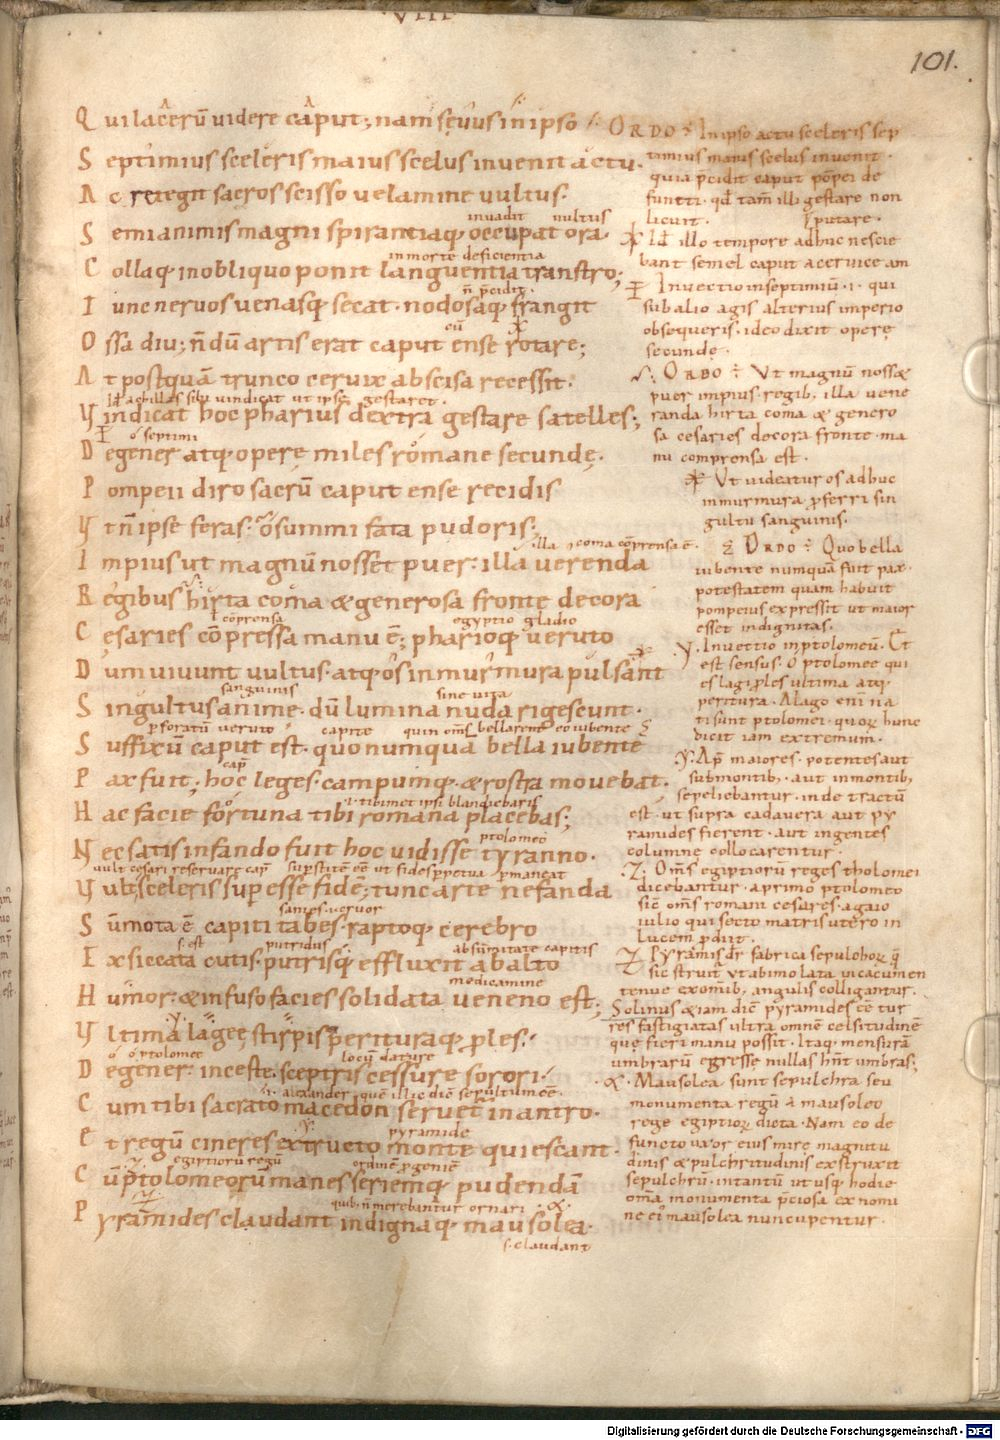 VIII
101.
Q ui lacerū videre caput; nam sęuus in ipso
S eptimius sceleris maius scelus invenit actu.
A c retegit sacros scisso velamine vultus.
invadit vultus
S emianimis magni spirantiaq; occupat ora.
in morte deficientia
C ollaq; in obliquo ponit languentia transtro;
n̄ p̄cidit.
T unc nervos venasq; secat. nodosaq; frangit
O ssa diu; n̄dū artis erat caput ense rotare;
A t postquā trunco cervix abscisa recessit.
Id achillas sibi vindicat ut ipse gestaret.
V indicat hoc pharius dextra gestare satelles;
o septimi
D egener atq; operę miles romane secundę.
P ompeii diro sacrū caput ense recidis
V t n̄ ipse feras. o summi fata pudoris;
illa coma cōprensa ē.
I mpius ut magnū nosset puer: illa verenda
R egibus hirta coma & generosa fronte decora
cōprensa egyptio gladio
C esaries cōpressa manu ē; pharioq; veruto
D um vivunt vultus. atq; os in murmura pulsant
sanguinis sine vita
S ingultus animę. dū lumina nuda rigescunt.
p̄foratū veruto capite quin om̄s bellarent eo iubente
S uffixū caput est. quo numquā bella iubente
cap̄
P ax fuit; hoc leges. campumq; & rostra movebat.
i. tibimet ipsi blandiebaris
H ac facie fortuna tibi romana placebas;
ptolomeo
N ec satis infando fuit hoc vidisse tyranno.
vult cesari reservare cap̄ supstitē eē ut fides perpetua p̄maneat
V ult sceleris supesse fidē; tunc arte nefanda
sanies. cruor
S ūmota ē capiti tabes. raptoq; cerebro
s. est putridus absūmitate capitis
E xsiccata cutis. putrisq; effluxit ab alto
medicamine
H umor: & infuso facies solidata veneno est;
V ltima lageę stirpis perituraq; ples.
o o ptolomee locū dature
D egener: inceste. sceptris cessure sorori
i. alexander quē illic diē sepultum eē.
C um tibi sacrato macedon servet in antro.
pyramide
E t regū cineres extructo monte quiescant.
egiptiorū regū ordinē p̄geniē
C ū ptolomeorū manes seriemq; pudendā
quib; n̄ merebantur ornari. x.
P yramides claudant indignaq; mausolea.
s. claudant
ORDO: In ipso actu sceleris sep
timius maius scelus invenit.
quia p̄cidit caput pōpei de
functi. qd̄ tam̄ illi gestare non
licuit. putare.
Id illo tempore adhuc nescie
bant semel caput a cervice am
Invectio in septimiū. i. qui
sub alio agis alterius imperio
obsequeris. ideo dixit operę
secundę.
ORDO: Ut magnū nosset
puer impius. regib; illa vene
randa hirta coma & genero
sa cesaries decora fronte. ma
nu comprensa est.
Ut videatur os adhuc
in murmura p̄ferri sin
gultu sanguinis.
ORDO: Quo bella
iubente numquā fuit pax.
potestatem quam habuit
pompeius expressit ut maior
esset indignitas.
y. Invectio in ptolomeū. Et
est sensus. O ptolomee qui
es lagi ples ultima atq;
peritura. A lago eni na
ti sunt ptolomei. quoꝝ hunc
dicit iam extremum.
y. Ap̄ maiores. potentes aut
sub montib; aut in montib;
sepeliebantur. inde tractū
est. ut supra cadavera aut py
ramides fierent. aut ingentes
columne collocarentur.
z. Om̄s egiptiorū reges tholomei
dicebantur. a primo ptolomeo
sic̄ om̄s romani cesares. a gaio
iulio qui secto matris utero in
lucem p̄diit.
Z Pyramis dr̄ fabrica sepulchoꝝ q̄
sic struit̄ ut ab imo lata in cacumen
tenue ex omīb; angulis colligantur.
Solinus &iam diē pyramides eē tur
res fastigiatas ultra omnē celsitudinē
quę fieri manu possit. Itaq; mensurā
umbrarū egressę nullas hn̄t umbras;
x. Mausolea sunt sepulchra seu
monumenta regū a mausoleo
rege egiptioꝝ dicta. Nam eo de
functo uxor eius mirę magnitu
dinis & pulchritudinis exstruxit
sepulchrū. intantū ut usq; hodie
om̄a monumenta p̄ciosa ex nomi
ne ei; mausolea nuncupentur.
Digitalisierung gefördert durch die Deutsche Forschungsgemeinschaft - DFG